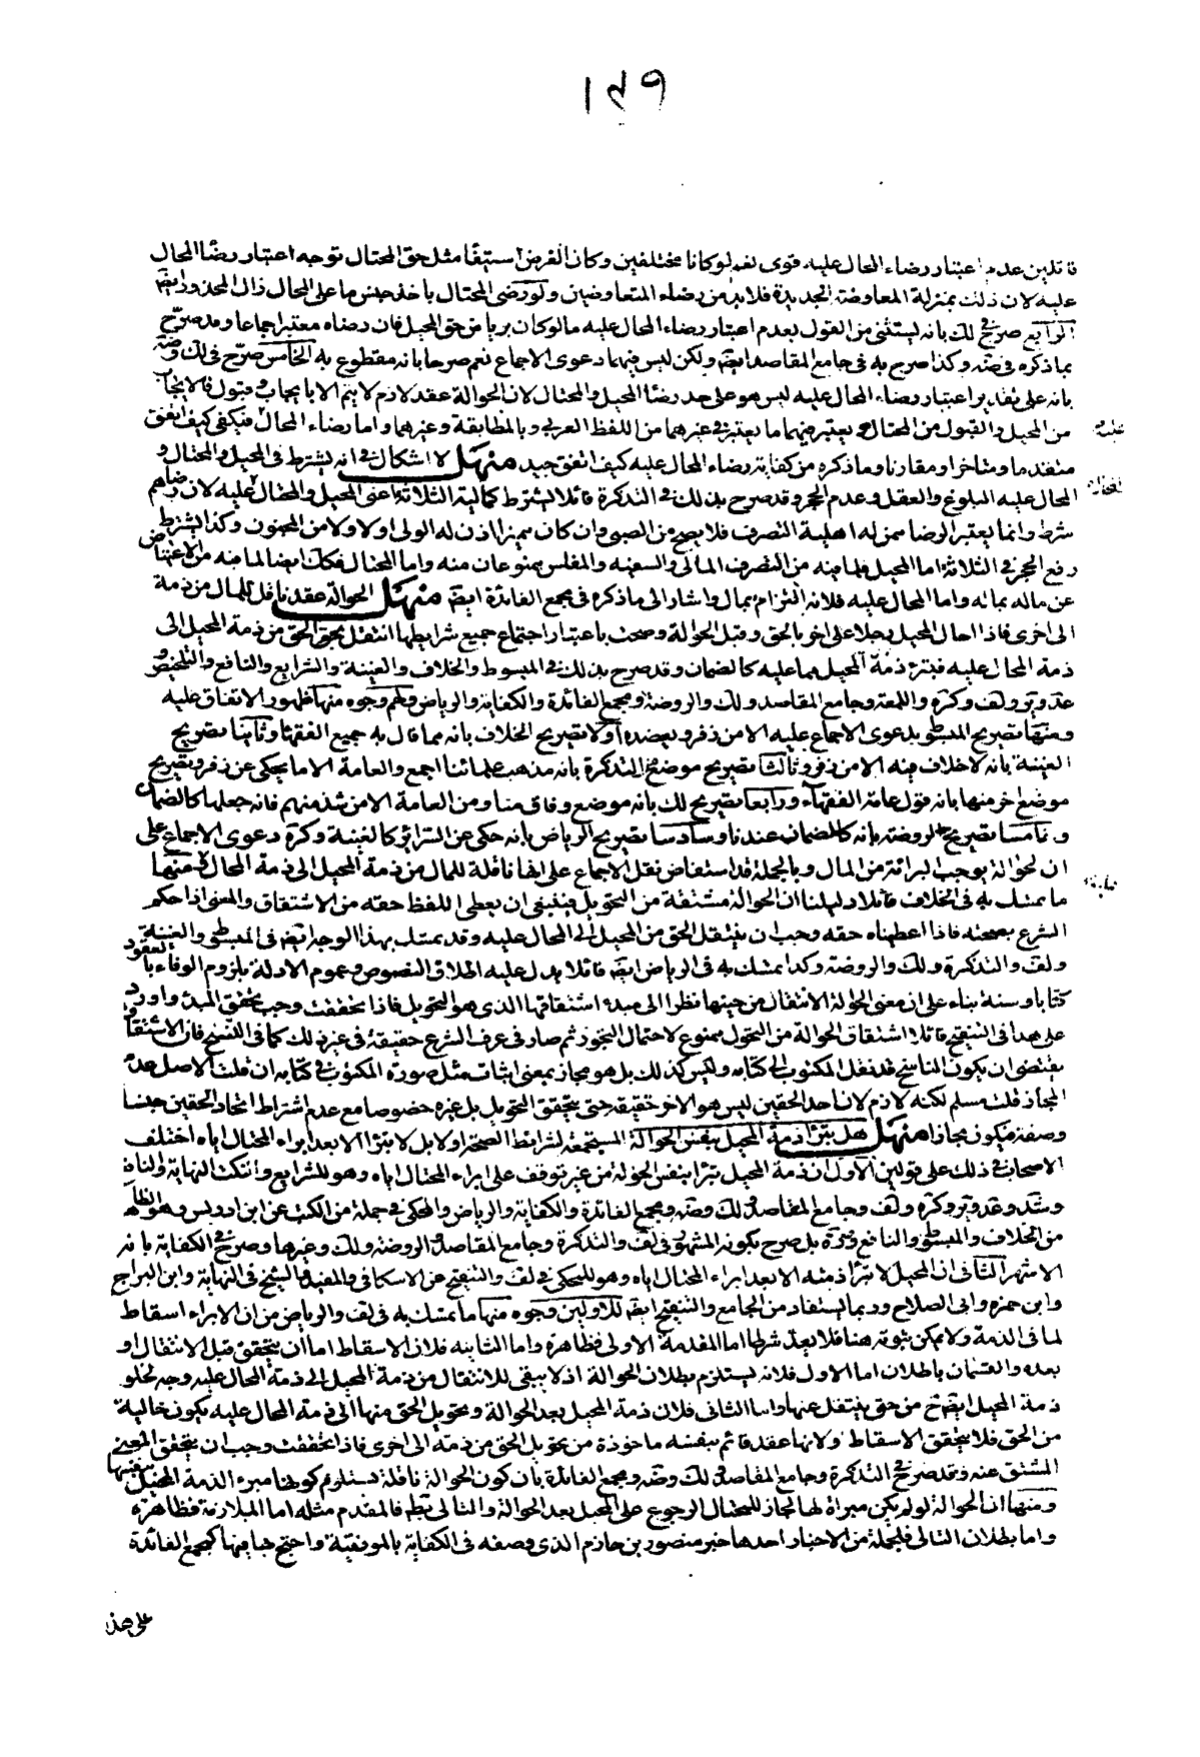 ١٤٩
قائلين عدم اعتبار رضاء المحال عليه قوى نعم لو كانا مختلفين وكان الغرض استيفا مثل حق المحتال توجه اعتبار رضا المحال
عليه لان ذلك بمنزلة المعاوضة الجديدة فلابد من رضاء المتعاوضين ولو رضى المحتال باخذ جنس ما على المحال زال المحذور ايضا
الرابع صرح في لك بانه يستثنى من القول بعدم اعتبار رضاء المحال عليه ما لو كان بريا من حق المحيل فان رضاه معتبر اجماعا وقد صرح
بما ذكره في ضه وكذا صرح به في جامع المقاصد ايضا ولكن ليس فيهما دعوى الاجماع نعم صرحا بانه مقطوع به الخامس صرح في لك وضه
بانه على تقدير اعتبار رضاء المحال عليه ليس هو على حد رضا المحيل والمحتال لان الحوالة عقد لازم لا يتم الا بايجاب وقبول فالايجاب
من المحيل والقبول من المحتال و يعتبر فيهما ما يعتبر في غيرهما من اللفظ العربي و بالمطابقة وغيرهما واما رضاء المحال فيكفى كيف اتفق
متقدما ومتاخرا ومقارنا وما ذكره من كفاية رضاء المحال عليه كيف اتفق جيد منهل لا اشكال في انه يشترط في المحيل والمحتال و
المحال عليه البلوغ والعقل وعدم الحجر وقد صرح بذلك في التذكرة قائلا يشترط كمالية الثلاثة اعنى المحيل والمحتال عليه لان رضاهم
شرط وانما يعتبر الرضا ممن له اهلية التصرف فلا يصح من الصبى وان كان مميزا اذن له الولى او لا ولا من المجنون وكذا يشترط
رفع الحجر في الثلاثة اما المحيل فلما فيه من التصرف المالى والسفيه والمفلس ممنوعان منه واما المحتال فكك ايضا لما فيه من الاعتياض
عن ماله بماله واما المحال عليه فلانه التزام بمال واشار الى ما ذكره في مجمع الفائدة ايضا منهل الحوالة عقد ناقل للمال من ذمة
الى اخرى فاذا احال المحيل رجلا على اخر بالحق وقبل الحوالة وصحت باعتبار اجتماع جميع شرايطها انتقل بحق الحق من ذمة المحيل الى
ذمة المحال عليه فتبرء ذمة المحيل مما عليه كالضمان وقد صرح بذلك في المبسوط والخلاف والغنية والشرايع والنافع والتلخيص و
عد وير ولف وكره واللمعه وجامع المقاصد ولك والروضة ومجمع الفائدة والكفاية والرياض ولهم وجوه منها ظهور الاتفاق عليه
ومنها تصريح المبسوط بدعوى الاجماع عليه الا من زفر ويعضده اولا تصريح الخلاف بانه مما قال به جميع الفقهاء وثانيا تصريح
الغنية بانه لا خلاف فيه الا من زفر وثالثا تصريح موضع من التذكرة بانه مذهب علمائنا اجمع والعامة الا ما يحكى عن زفر وتصريح
موضع اخر منها بانه قول عامة الفقهاء ورابعا تصريح لك بانه موضع وفاق منا ومن العامة الا من شذ منهم فانه جعلها كالضمان
وخامسا تصريح الروضة بانه كالضمان عندنا وسادسا تصريح الرياض بانه حكى عن السرائر كالغنية وكره دعوى الاجماع على
ان الحوالة يوجب البرائة من المال وبالجملة قد استفاض نقل الاجماع على انها ناقلة للمال من ذمة المحيل الى ذمة المحال ومنها
ما تمسك به في الخلاف قائلا دليلنا ان الحوالة مشتقة من التحويل فينبغى ان يعطى اللفظ حقه من الاشتقاق والمعنى اذا حكم
الشرع بصحته فاذا اعطيناه حقه وجب ان ينتقل الحق من المحيل الى المحال عليه وقد تمسك بهذا الوجه ايضا في المبسوط والغنية
ولف والتذكرة ولك والروضة وكذا تمسك به في الرياض ايضا قائلا يدل عليه اطلاق النصوص وعموم الادلة بلزوم الوفاء بالعقود
كتابا وسنة بناء على ان معنى الحوالة الانتقال من حينها نظرا الى مبدء اشتقاقها الذي هو التحويل فاذا تحققت وجب تحقق المبدء واورد
على هذا في التنقيح قائلا اشتقاق الحوالة من التحول ممنوع لاحتمال التجوز ثم صار في عرف الشرع حقيقة في غير ذلك كما في النسخ فان الاشتقاق
يقتضى ان يكون الناسخ قد نقل المكتوب الى كتابه وليس كذلك بل هو مجاز بمعنى اثبات مثل صورة المكتوب في كتابه ان قلت الاصل عدم
المجاز قلت مسلم لكنه لازم لان احد الحقين ليس هو الاخر حقيقة حتى يتحقق التحويل بل غيره خصوصا مع عدم اشتراط اتحاد الحقين جنسا
وصفة فيكون مجازا منهل هل يبرا ذمة المحيل بنفس الحوالة المستجمعة لشرائط الصحة اولا بل لا يبرا الا بعد ابراء المحتال اياه اختلف
الاصحاب في ذلك على قولين الاول ان ذمة المحيل تبرا بنفس الحوالة من غير توقف على ابراء المحتال اياه وهو للشرايع ونكت النهاية والنافع
وشد وعد وير وكره ولف وجامع المقاصد ولك وضه ومجمع الفائدة والكفاية والرياض والمحكى في جملة من الكتب عن ابن ادريس وهو الظاهر
من الخلاف والمبسوط والنافع بل صرح بكونه المشهور في لف والتذكرة وجامع المقاصد والروضة ولك وغيرها وصرح في الكفاية بانه
الاشهر الثانى ان المحيل لا تبرا ذمته الا بعد ابراء المحتال اياه وهو للمحكى في لف والتنقيح عن الاسكافى والمفيد والشيخ في النهاية وابن البراج
وابن حمزه وابى الصلاح وربما يستفاد من الجامع والتنقيح ايضا للاولين وجوه منها ما تمسك به في لف والرياض من ان الابراء اسقاط
لما في الذمة ولا يمكن ثبوته هنا فلا يعد شرطا اما المقدمة الاولى فظاهرة واما الثانيه فلان الاسقاط اما ان يتحقق قبل الانتقال او
بعده والقسمان باطلان اما الاول فلانه يستلزم بطلان الحوالة اذ لا يبقى للانتقال من ذمة المحيل الى ذمة المحال عليه وجه لخلو
ذمة المحيل ايضا من حق ينتقل عنها واما الثانى فلان ذمة المحيل بعد الحوالة وتحويل الحق منها الى ذمة المحال عليه يكون خالية
من الحق فلا يتحقق الاسقاط ولانها عقد قائم بنفسه ماخوذة من تحويل الحق من ذمة الى اخرى فاذا تحققت وجب ان يتحقق المعنى
المشتق عنه وقد صرح في التذكرة وجامع المقاصد ولك وضه ومجمع الفائدة بان كون الحوالة ناقلة يستلزم كونها مبرء الذمة المحيل بنفسها
ومنها ان الحوالة لو لم يكن مبراة لها لجاز للمحتال الرجوع على المحيل بعد الحوالة والتالى بط فالمقدم مثله اما الملازمة فظاهرة
واما بطلان التالى فلجملة من الاخبار احدها خبر منصور بن حازم الذى وصفه في الكفاية بالموثقية واحتج به فيها كمجمع الفائدة
على هذا